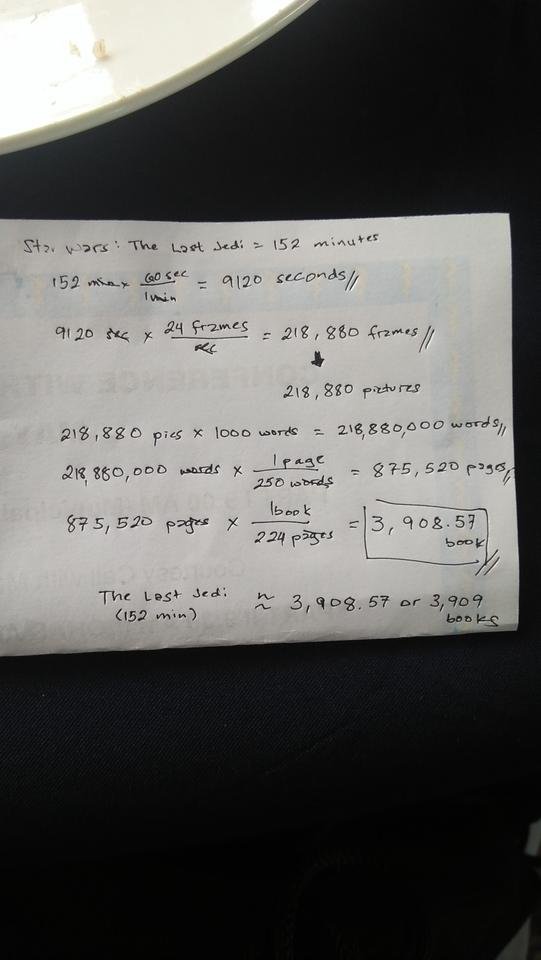 Star Wars: The Last Jedi = 152 minutes
152 min x 60 sec / 1 min = 9120 seconds //
9120 sec x 24 frames / sec = 218,880 frames //
↓
218,880 pictures
218,880 pics x 1000 words = 218,880,000 words //
218,880,000 words x 1 page / 250 words = 875,520 pages //
875,520 pages x 1 book / 224 pages = 3,908.57 book //
The Last Jedi ≈ 3,908.57 or 3,909
(152 min) books